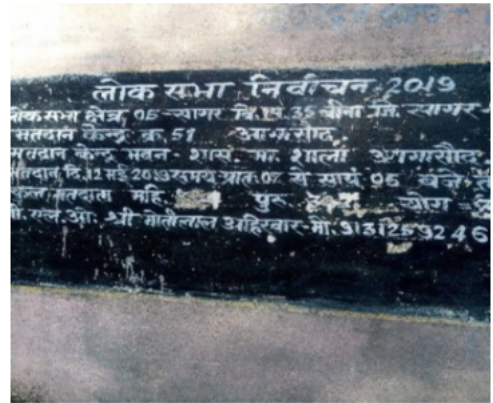 लोक सभा निर्वाचन-2019
लोक सभा क्षेत्र 05-सागर वि.स. 35 बीना जि. सागर
मतदान केन्द्र क्र. 51 आगासौद
मतदान केन्द्र भवन - शास. मा. शाला आगासौद
मतदान दि. 12 मई 2019 समय प्रातः 07 से सायं 05 बजे
मतदाता महि. पुरु. योग
श्री मोतीलाल अहिरवार-मो. 9131259246